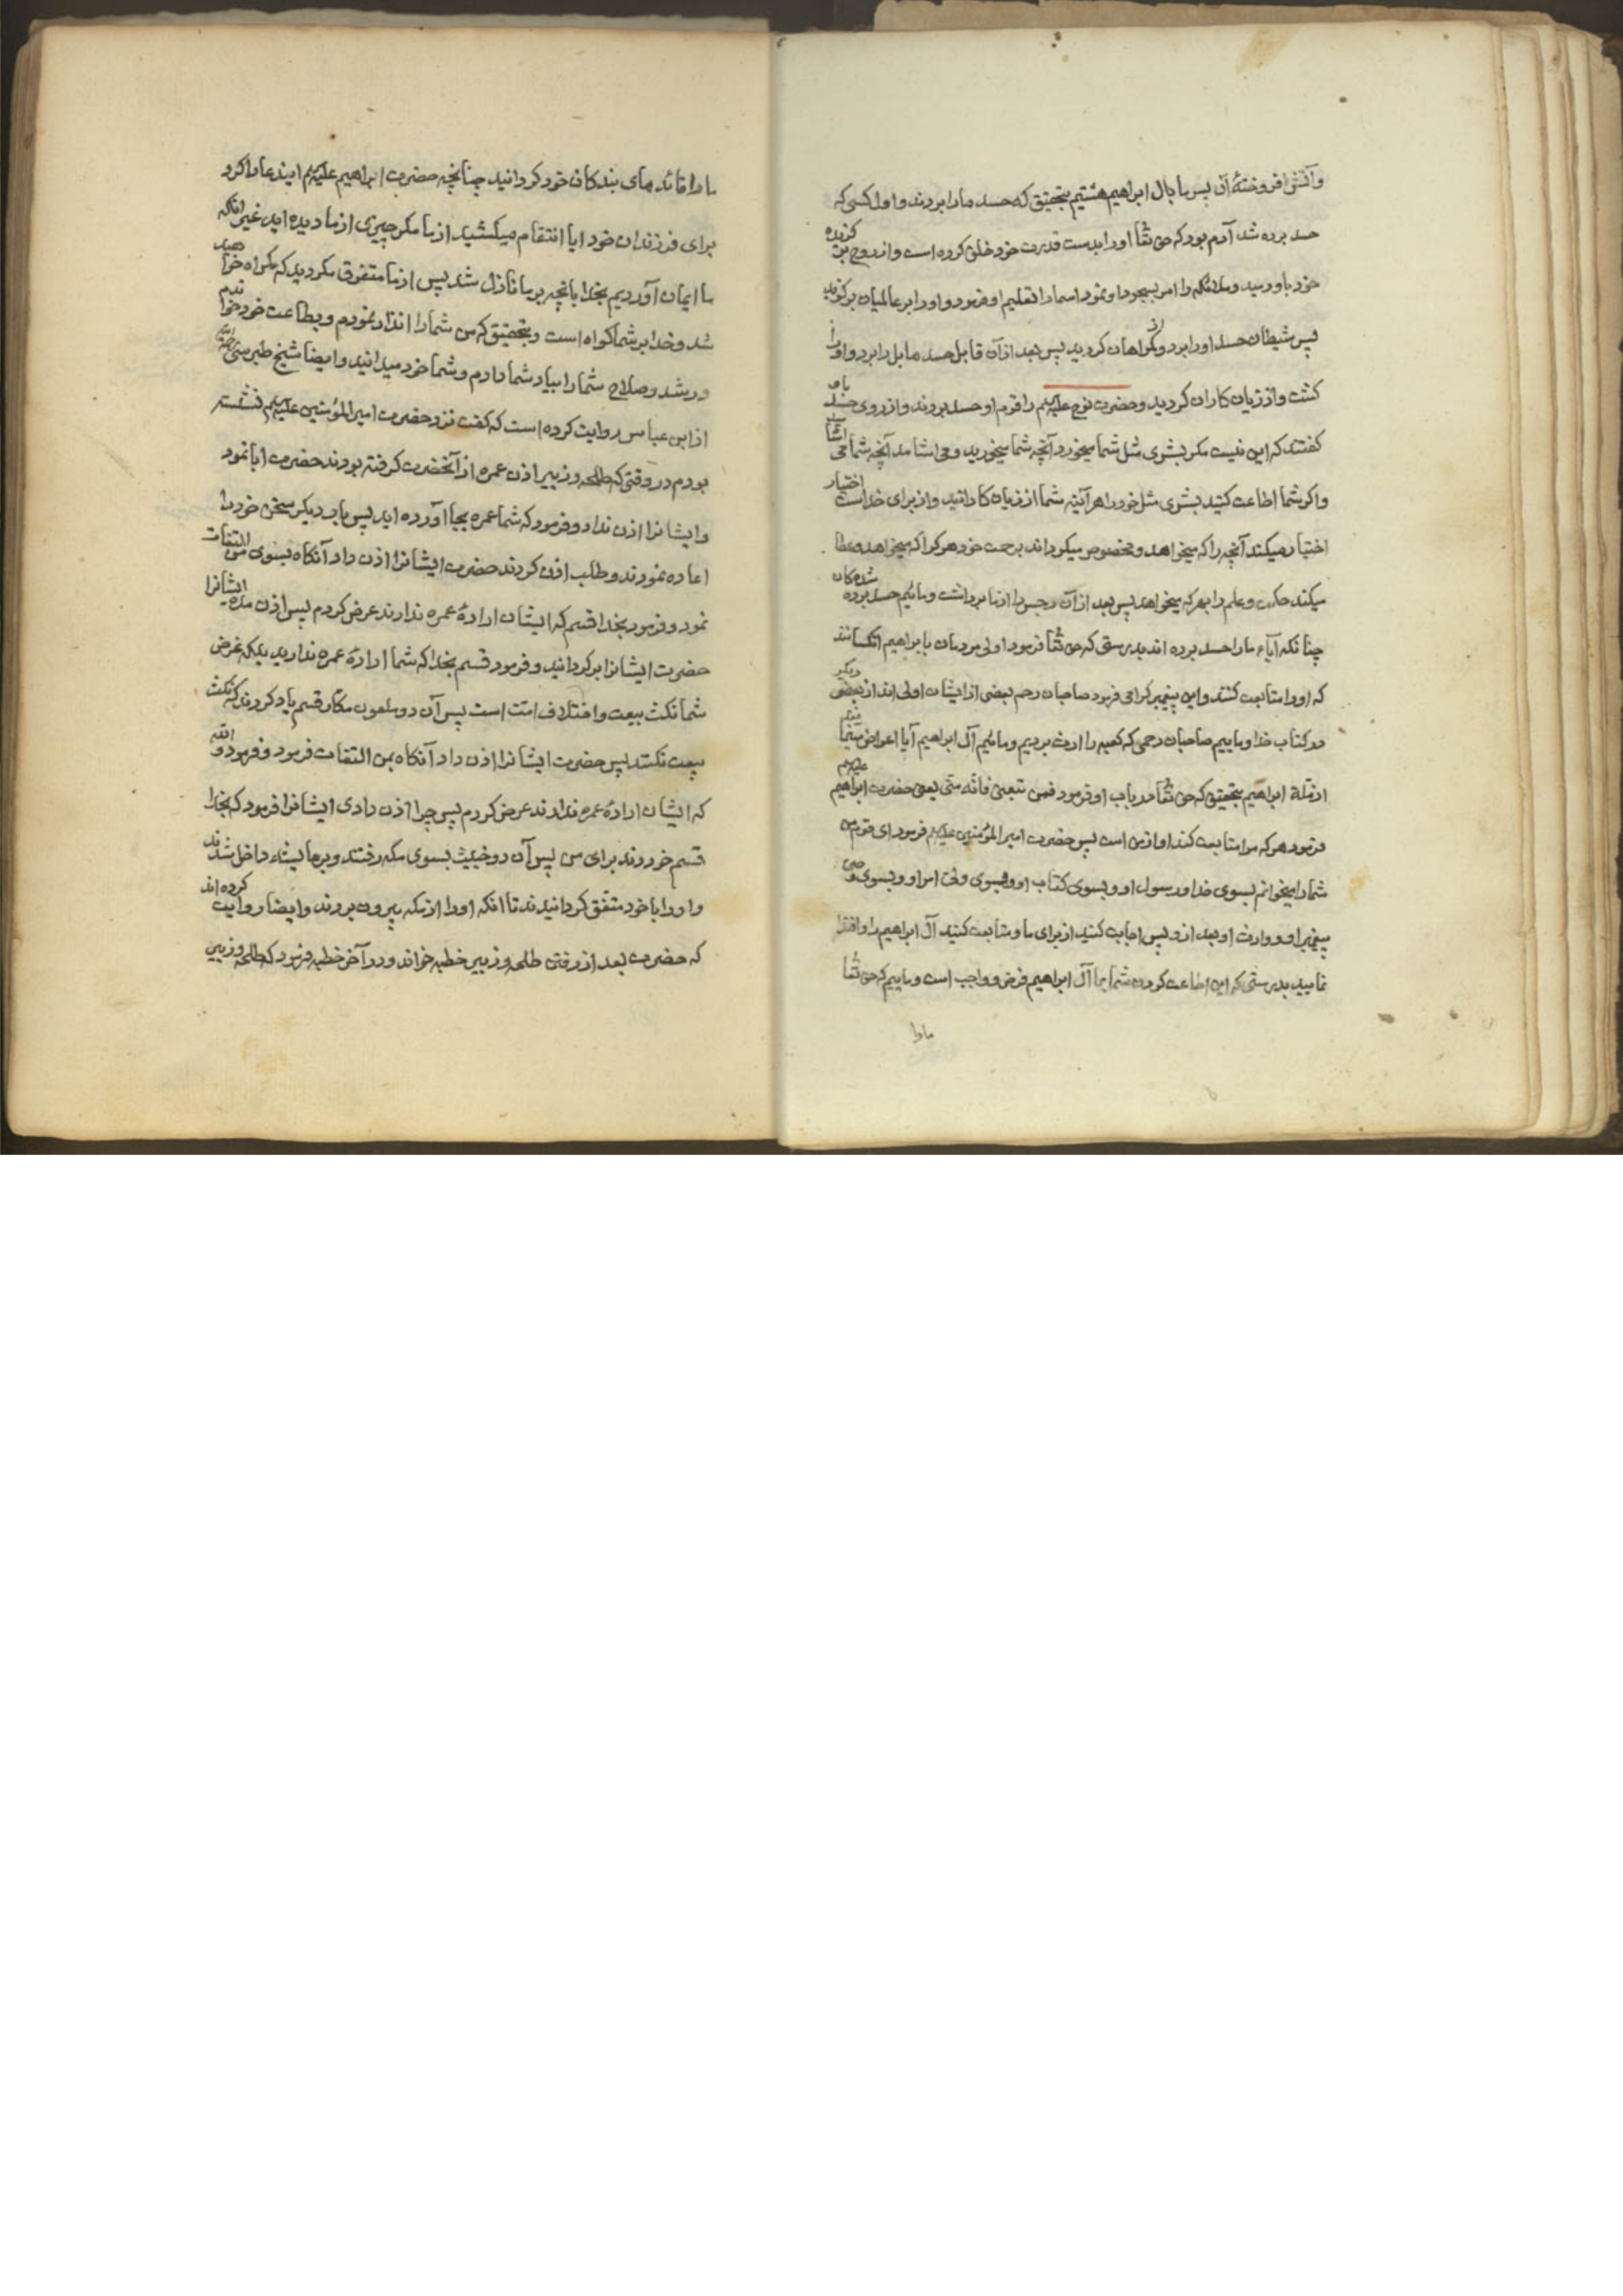 وآتش افروختهٔ آن پس ما بال ابراهیم هستیم بتحقیق که حسد ما را بردند واول کسی که
حسد برده شد آدم بود که حق تعا اورا بدست قدرت خود خلق کرده است واز روح برگزیده
خود باو دمید وملائکه را امر بسجود او نمود اسما را تعلیم او فرمود واورا بر عالمیان برگزید
پس شیطان حسد اورا برد واز گمراهان کردید پس بعد از آن قابل حسد هابل را برد واورا
کشت واز زیان کاران کردید وحضرت نوح علیه السلم را قوم او حسد بردند واز روی حسد باو
کفتند که این نیست مکر بشری مثل شما میخورد آنچه شما میخورید ومی اشامد آنچه شما می اشامید
واکر شما اطاعت کنید بشری مثل خود را هر آینه شما از زیان کارانید واز برای خداست اختیار
اختیار میکند آنچه را که میخواهد ومخصوص میکرداند برحمت خود هر کرا که میخواهد وعطا
میکند حکمت وعلم را بهر که میخواهد پس بعد از آن رجس را از ما برداشت ومائیم حسد برده شدکان
چنانکه آباء ما را حسد برده اند بدرستی که حق تعا فرمود اولی مردمان بابراهیم انکسانند
که اورا متابعت کنند واین پیغمبر کرامی فرمود صاحبان رحم بعضی از ایشان اولی اند از بعضی دیکر
در کتاب خدا وماییم صاحبان رحمی که کعبه را ارث بردیم ومائیم آل ابراهیم آیا اعراض مینمایند
از ملة ابراهیم بتحقیق که حق تعا در باب او فرمود فمن تبعنی فانه منی یعنی حضرت ابراهیم علیه السلم
فرمود هر که مرا متابعت کند او از من است پس حضرت امیر المؤمنین علیه السلم فرمود ای قوم من
شما را میخوانم بسوی خدا ورسول او وبسوی کتاب او وبسوی ولی امر او وبسوی وصی
پیغمبر او ووارث او بعد از و پس اجابت کنید از برای ما ومتابعت کنید آل ابراهیم را واقتدا
نمایید بدرستی که این اطاعت کردن شما بما آل ابراهیم فرض وواجب است وماییم که حق تعا
ما را
ما را قائد های بندکان خود کردانید چنانچه حضرت ابراهیم علیه السلم ایندعا را کرد
برای فرزندان خود ایا انتقام میکشید از ما مکر چیزی از ما دیده اید غیر انکه
ما ایمان آوردیم بخدا بانچه بر ما نازل شد پس از ما متفرق مکردید که کمراه خواهید
شد وخدا بر شما کواه است وبتحقیق که من شما را انذار نمودم وبطاعت خود خواندم
ورشد وصلاح شما را بیاد شما دادم وشما خود میدانید وایضا شیخ طبرسی رحمه الله
از ابن عباس روایت کرده است که کفت نزد حضرت امیر المؤمنین علیه السلم نشسته
بودم در وقتی که طلحه وزبیر اذن عمره از آنحضرت کرفته بودند حضرت ابا نمود
وایشانرا اذن نداد وفرمود که شما عمره بجا آورده اید پس بار دیکر سخن خود را
اعاده نمودند وطلب اذن کردند حضرت ایشانرا اذن داد آنکاه بسوی من التفات
نمود وفرمود بخدا قسم که ایشان ارادهٔ عمره ندارند عرض کردم پس اذن مده ایشانرا
حضرت ایشانرا برکردانید وفرمود قسم بخدا که شما ارادهٔ عمره ندارید بلکه غرض
شما نکث بیعت واختلاف امّت است پس آن دو ملعون مکّار قسم یاد کردند که نکث
بیعت نکنند پس حضرت ایشانرا اذن داد آنکاه بمن التفات فرمود وفرمود والله
که ایشان ارادهٔ عمره ندارند عرض کردم پس چرا اذن دادی ایشانرا فرمود که بخدا
قسم خوردند برای من پس آن دو خبیث بسوی مکه رفتند وبر عایشه داخل شدند
واورا با خود متفق کردانیدند تا انکه اورا از مکه بیرون بردند وایضا روایت کرده اند
که حضرت بعد از رفتن طلحه وزبیر خطبه خواند ودر آخر خطبه فرمود که طلحه وزبیر